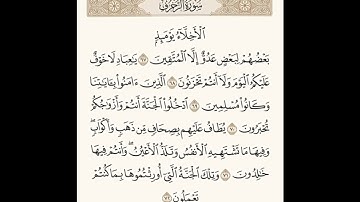 سورة الزخرف
ٱلْأَخِلَّآءُ يَوْمَئِذٍۭ
بَعْضُهُمْ لِبَعْضٍ عَدُوٌّ إِلَّا ٱلْمُتَّقِينَ ٦٧ يَٰعِبَادِ لَا خَوْفٌ
عَلَيْكُمُ ٱلْيَوْمَ وَلَآ أَنتُمْ تَحْزَنُونَ ٦٨ ٱلَّذِينَ ءَامَنُوا۟ بِـَٔايَٰتِنَا
وَكَانُوا۟ مُسْلِمِينَ ٦٩ ٱدْخُلُوا۟ ٱلْجَنَّةَ أَنتُمْ وَأَزْوَٰجُكُمْ
تُحْبَرُونَ ٧٠ يُطَافُ عَلَيْهِم بِصِحَافٍ مِّن ذَهَبٍ وَأَكْوَابٍ ۖ
وَفِيهَا مَا تَشْتَهِيهِ ٱلْأَنفُسُ وَتَلَذُّ ٱلْأَعْيُنُ ۖ وَأَنتُمْ فِيهَا
خَٰلِدُونَ ٧١ وَتِلْكَ ٱلْجَنَّةُ ٱلَّتِىٓ أُورِثْتُمُوهَا بِمَا كُنتُمْ
تَعْمَلُونَ ٧٢